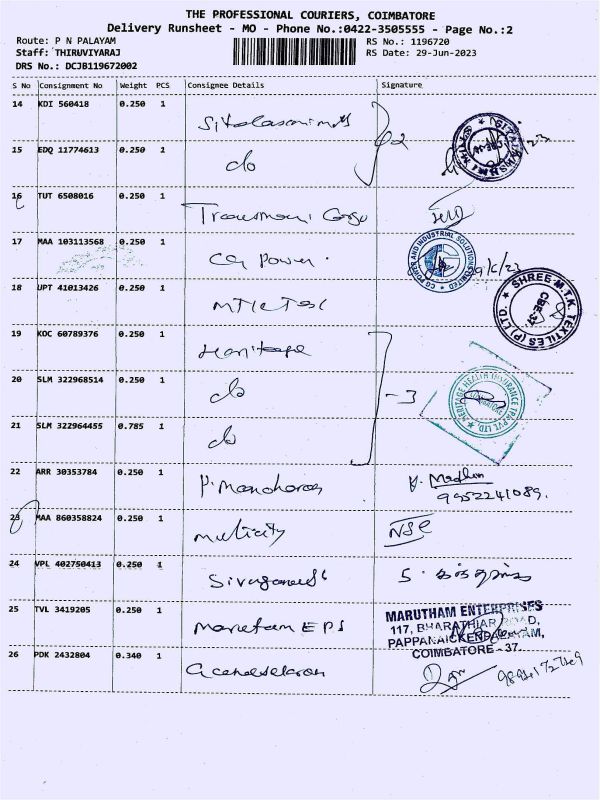 THE PROFESSIONAL COURIERS, COIMBATORE
Delivery Runsheet - MO - Phone No.:0422-3505555 - Page No.:2
Route: P N PALAYAM
RS No.: 1196720
Staff: THIRUVIYARAJ
RS Date: 29-Jun-2023
DRS No.: DCJB119672002
S No Consignment No Weight PCS Consignee Details Signature
14 KDI 560418 0.250 1
15 EDQ 11774613 0.250 1 do
16 TUT 6508016 0.250 1
17 MAA 103113568 0.250 1 CG Power.
CG POWER AND INDUSTRIAL SOLUTIONS LIMITED
18 UPT 41013426 0.250 1
SHREE M.T.K TEXTILES (P) LTD. CBE-37.
19 KOC 60789376 0.250 1 Heritage
20 SLM 322968514 0.250 1 do
-3
HERITAGE HEALTH INSURANCE TPA PVT. LTD.
21 SLM 322964455 0.785 1 do
22 ARR 30353784 0.250 1 P. Manoharan
9952241089.
23 MAA 860358824 0.250 1 Multicity
24 VPL 402750413 0.250 1
25 TVL 3419205 0.250 1 Marutam EPS
MARUTHAM ENTERPRISES
117, BHARATHIAR ROAD,
PAPPANAICKENPALAYAM,
COIMBATORE - 37.
26 PDK 2432804 0.340 1